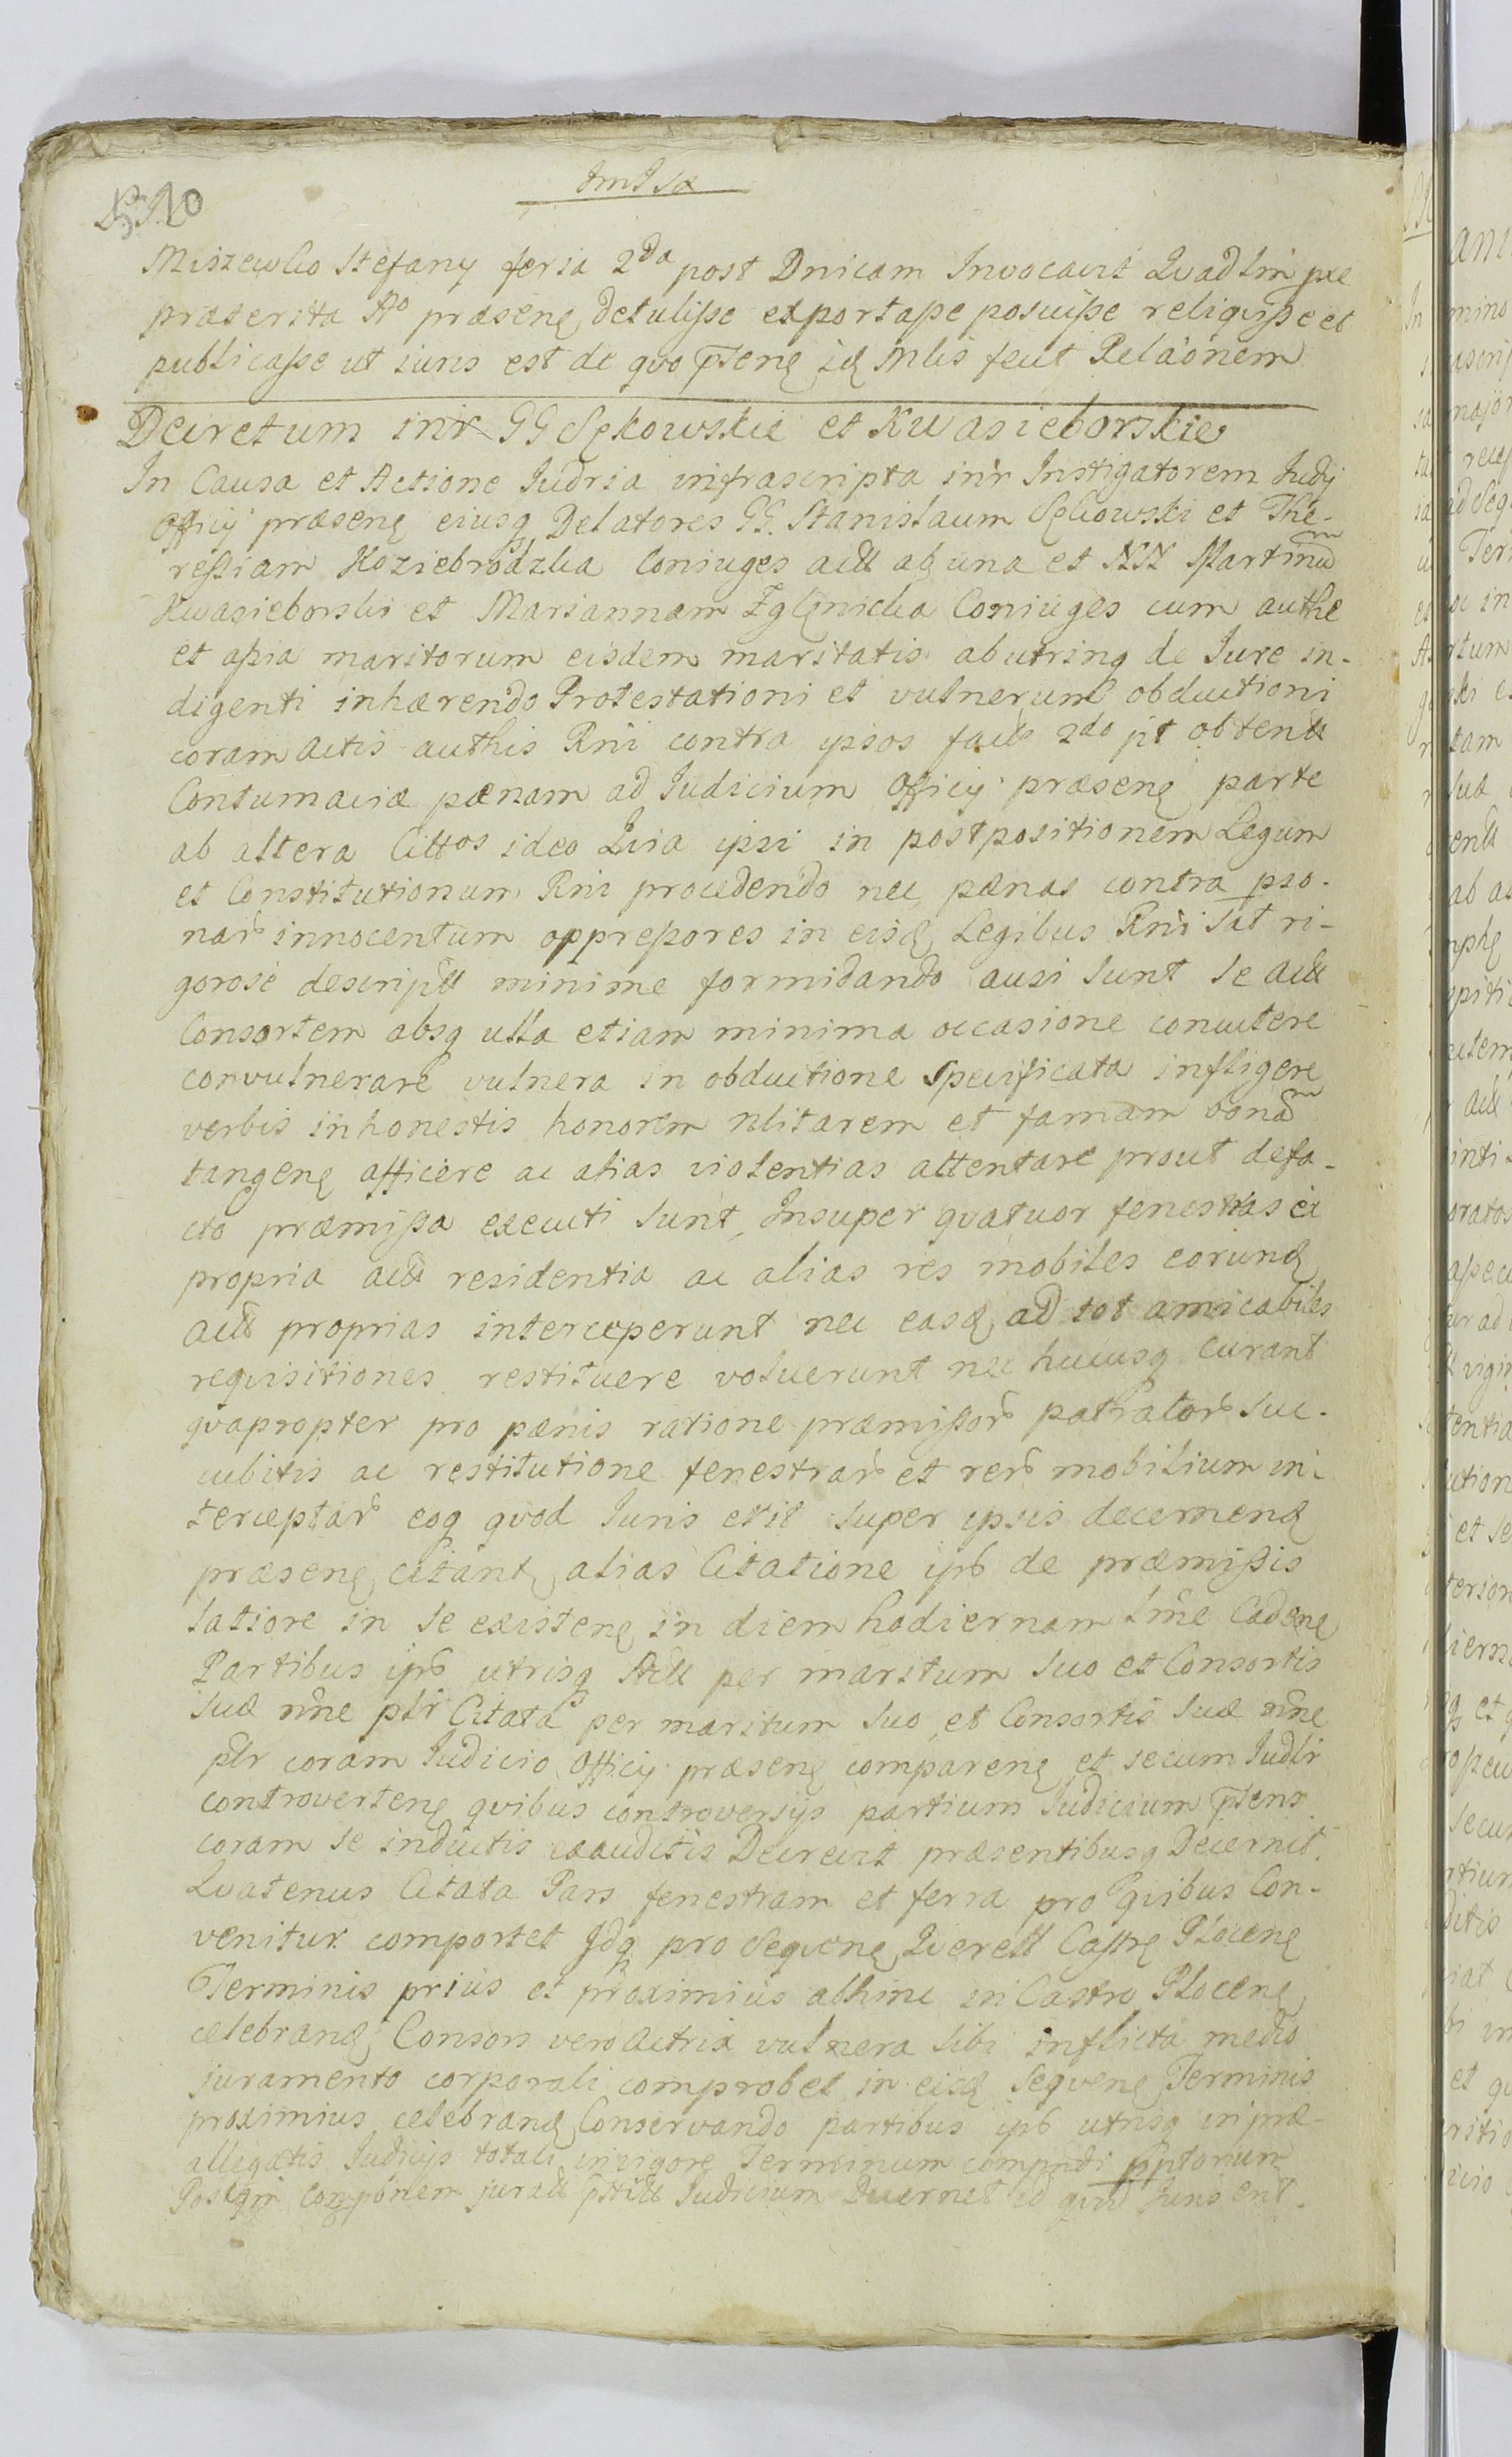 Miszewko Stefany feria 2da post Dnicam Invocavit Quadlim pae
praeterita Ao praesenę detulisse exportasse posuisse reliquisse et
publicasse ut iuris est de quo ptenę idę Mlis fecit Relaonem
Decretum intr GG Sękowskie et Kwasieborskie
In Causa et Actione Iudria infrascripta intr Instigatorem Iudij
Officij praesenę eiusq Delatores GG. Stanislaum Sękowski et The-
ressiam Koziebrodzka Coniuges actt ab una et NN Martinū
Kwasieborski et Mariannam Zglinicka Coniuges cum authe
et assia maritorum eisdem maritatis ab utrinq de Iure in-
digenti inhaerendo Protestationi et vulnerum obductioni
coram actis authis Rni contra ipsos factt 2do pt obtentt
Contumaciae paenam ad Iudicium Officij praesenę parte
ab altera Cittos ideo Quia ipsi in postpositionem Legum
et Constitutionum Rni procedendo nec paenas contra pso-
nar innocentum oppressores in eisdę Legibus Rni sat ri-
gorosè descriptt minime formidando ausi sunt se actt
Consortem absq ulla etiam minima occasione concutere
convulnerare vulnera in obductione specificata infligere
verbis inhonestis honorem Nlitarem et famam bonā
tangenę afficere ac alias violentias attentare prout defa-
cto praemissa executi sunt, Insuper quatuor fenestras ex
propria actt residentia ac alias res mobiles eorundę
actt proprias interceperunt nec easdę ad tot amicabiles
requisitiones restituere voluerunt nec hucusq curant
quapropter pro paenis ratione praemissor patrator suc-
cubitis ac restitutione fenestrar et rer mobilium in-
terceptar eoq quod Iuris erit super ipsis decernendę
praesenę citantę alias Citatione ipś de praemissis
latiore in se existenę in diem hodiernam lme Cadenę
Partibus ipś utrisq Actt per maritum suo et Consortis
suae nne pltr Citata per maritum suo et Consortis suae nne
pltr coram Iudicio Officij praesenę comparenę et secum Iudlr
controvertenę quibus controversijs partium Iudicium ptens
coram se inductis exauditis Decrevit praesentibusq Decernit.
Quatenus Citata Pars fenestram et ferra pro quibus Con-
venitur comportet Idq pro Sequenę Querell Castrę Plocenę
Terminis prius et proximius abhinc in Castro Plocenę
celebrandę Consors vero Actrix vulnera sibi inflicta medio
juramento corporali comprobet in eisdę Sequenę Terminis
proximius celebrandę Conservando partibus ipś utrisq in prae-
allegatis Iudicijs totali in vigore Terminum
Iudicium Decernet id quid Iuris erit.